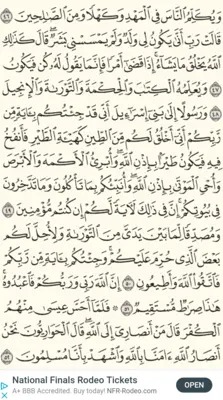 وَيُكَلِّمُ ٱلنَّاسَ فِى ٱلْمَهْدِ وَكَهْلًا وَمِنَ ٱلصَّٰلِحِينَ ٤٦
قَالَتْ رَبِّ أَنَّىٰ يَكُونُ لِى وَلَدٌ وَلَمْ يَمْسَسْنِى بَشَرٌ قَالَ كَذَٰلِكِ
ٱللَّهُ يَخْلُقُ مَا يَشَآءُ إِذَا قَضَىٰٓ أَمْرًا فَإِنَّمَا يَقُولُ لَهُۥ كُن فَيَكُونُ
٤٧ وَيُعَلِّمُهُ ٱلْكِتَٰبَ وَٱلْحِكْمَةَ وَٱلتَّوْرَىٰةَ وَٱلْإِنجِيلَ
٤٨ وَرَسُولًا إِلَىٰ بَنِىٓ إِسْرَٰٓءِيلَ أَنِّى قَدْ جِئْتُكُم بِـَٔايَةٍ مِّن
رَّبِّكُمْ أَنِّىٓ أَخْلُقُ لَكُم مِّنَ ٱلطِّينِ كَهَيْـَٔةِ ٱلطَّيْرِ فَأَنفُخُ
فِيهِ فَيَكُونُ طَيْرًۢا بِإِذْنِ ٱللَّهِ وَأُبْرِئُ ٱلْأَكْمَهَ وَٱلْأَبْرَصَ
وَأُحْىِ ٱلْمَوْتَىٰ بِإِذْنِ ٱللَّهِ وَأُنَبِّئُكُم بِمَا تَأْكُلُونَ وَمَا تَدَّخِرُونَ
فِى بُيُوتِكُمْ إِنَّ فِى ذَٰلِكَ لَـَٔايَةً لَّكُمْ إِن كُنتُم مُّؤْمِنِينَ ٤٩
وَمُصَدِّقًا لِّمَا بَيْنَ يَدَىَّ مِنَ ٱلتَّوْرَىٰةِ وَلِأُحِلَّ لَكُم
بَعْضَ ٱلَّذِى حُرِّمَ عَلَيْكُمْ وَجِئْتُكُم بِـَٔايَةٍ مِّن رَّبِّكُمْ
فَٱتَّقُوا۟ ٱللَّهَ وَأَطِيعُونِ ٥٠ إِنَّ ٱللَّهَ رَبِّى وَرَبُّكُمْ فَٱعْبُدُوهُ
هَٰذَا صِرَٰطٌ مُّسْتَقِيمٌ ٥١ ۞ فَلَمَّآ أَحَسَّ عِيسَىٰ مِنْهُمُ
ٱلْكُفْرَ قَالَ مَنْ أَنصَارِىٓ إِلَى ٱللَّهِ قَالَ ٱلْحَوَارِيُّونَ نَحْنُ
أَنصَارُ ٱللَّهِ ءَامَنَّا بِٱللَّهِ وَٱشْهَدْ بِأَنَّا مُسْلِمُونَ ٥٢
National Finals Rodeo Tickets
A+ BBB Accredited. Buy today! NFR-Rodeo.com
OPEN